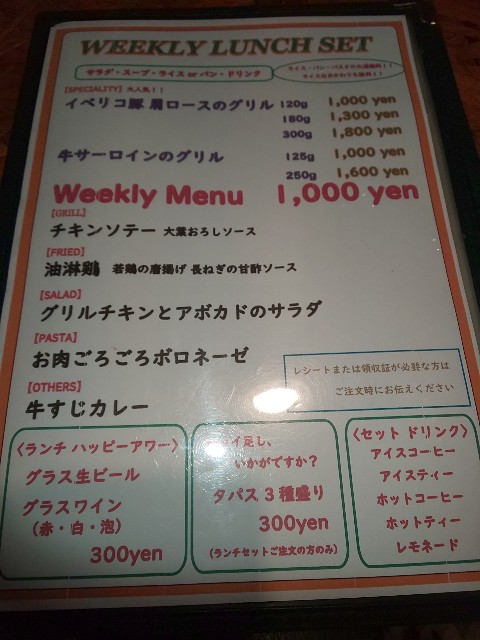 WEEKLY LUNCH SET
サラダ・スープ・ライス or パン・ドリンク
ライス・パン・パスタの大盛無料！！
ライスはおかわりも無料！！
[SPECIALITY] 大人気！！
イベリコ豚 肩ロースのグリル 120g 1,000 yen
180g 1,300 yen
300g 1,800 yen
牛サーロインのグリル 125g 1,000 yen
250g 1,600 yen
Weekly Menu 1,000 yen
[GRILL]
チキンソテー 大葉おろしソース
[FRIED]
油淋鶏 若鶏の唐揚げ 長ねぎの甘酢ソース
[SALAD]
グリルチキンとアボカドのサラダ
[PASTA]
お肉ごろごろボロネーゼ
[OTHERS]
牛すじカレー
レシートまたは領収証が必要な方は
ご注文時にお伝えください
〈ランチ ハッピーアワー〉
グラス生ビール
グラスワイン
（赤・白・泡）
300yen
イ足し、
いかがですか？
タパス３種盛り
300yen
(ランチセットご注文の方のみ)
〈セット ドリンク〉
アイスコーヒー
アイスティー
ホットコーヒー
ホットティー
レモネード